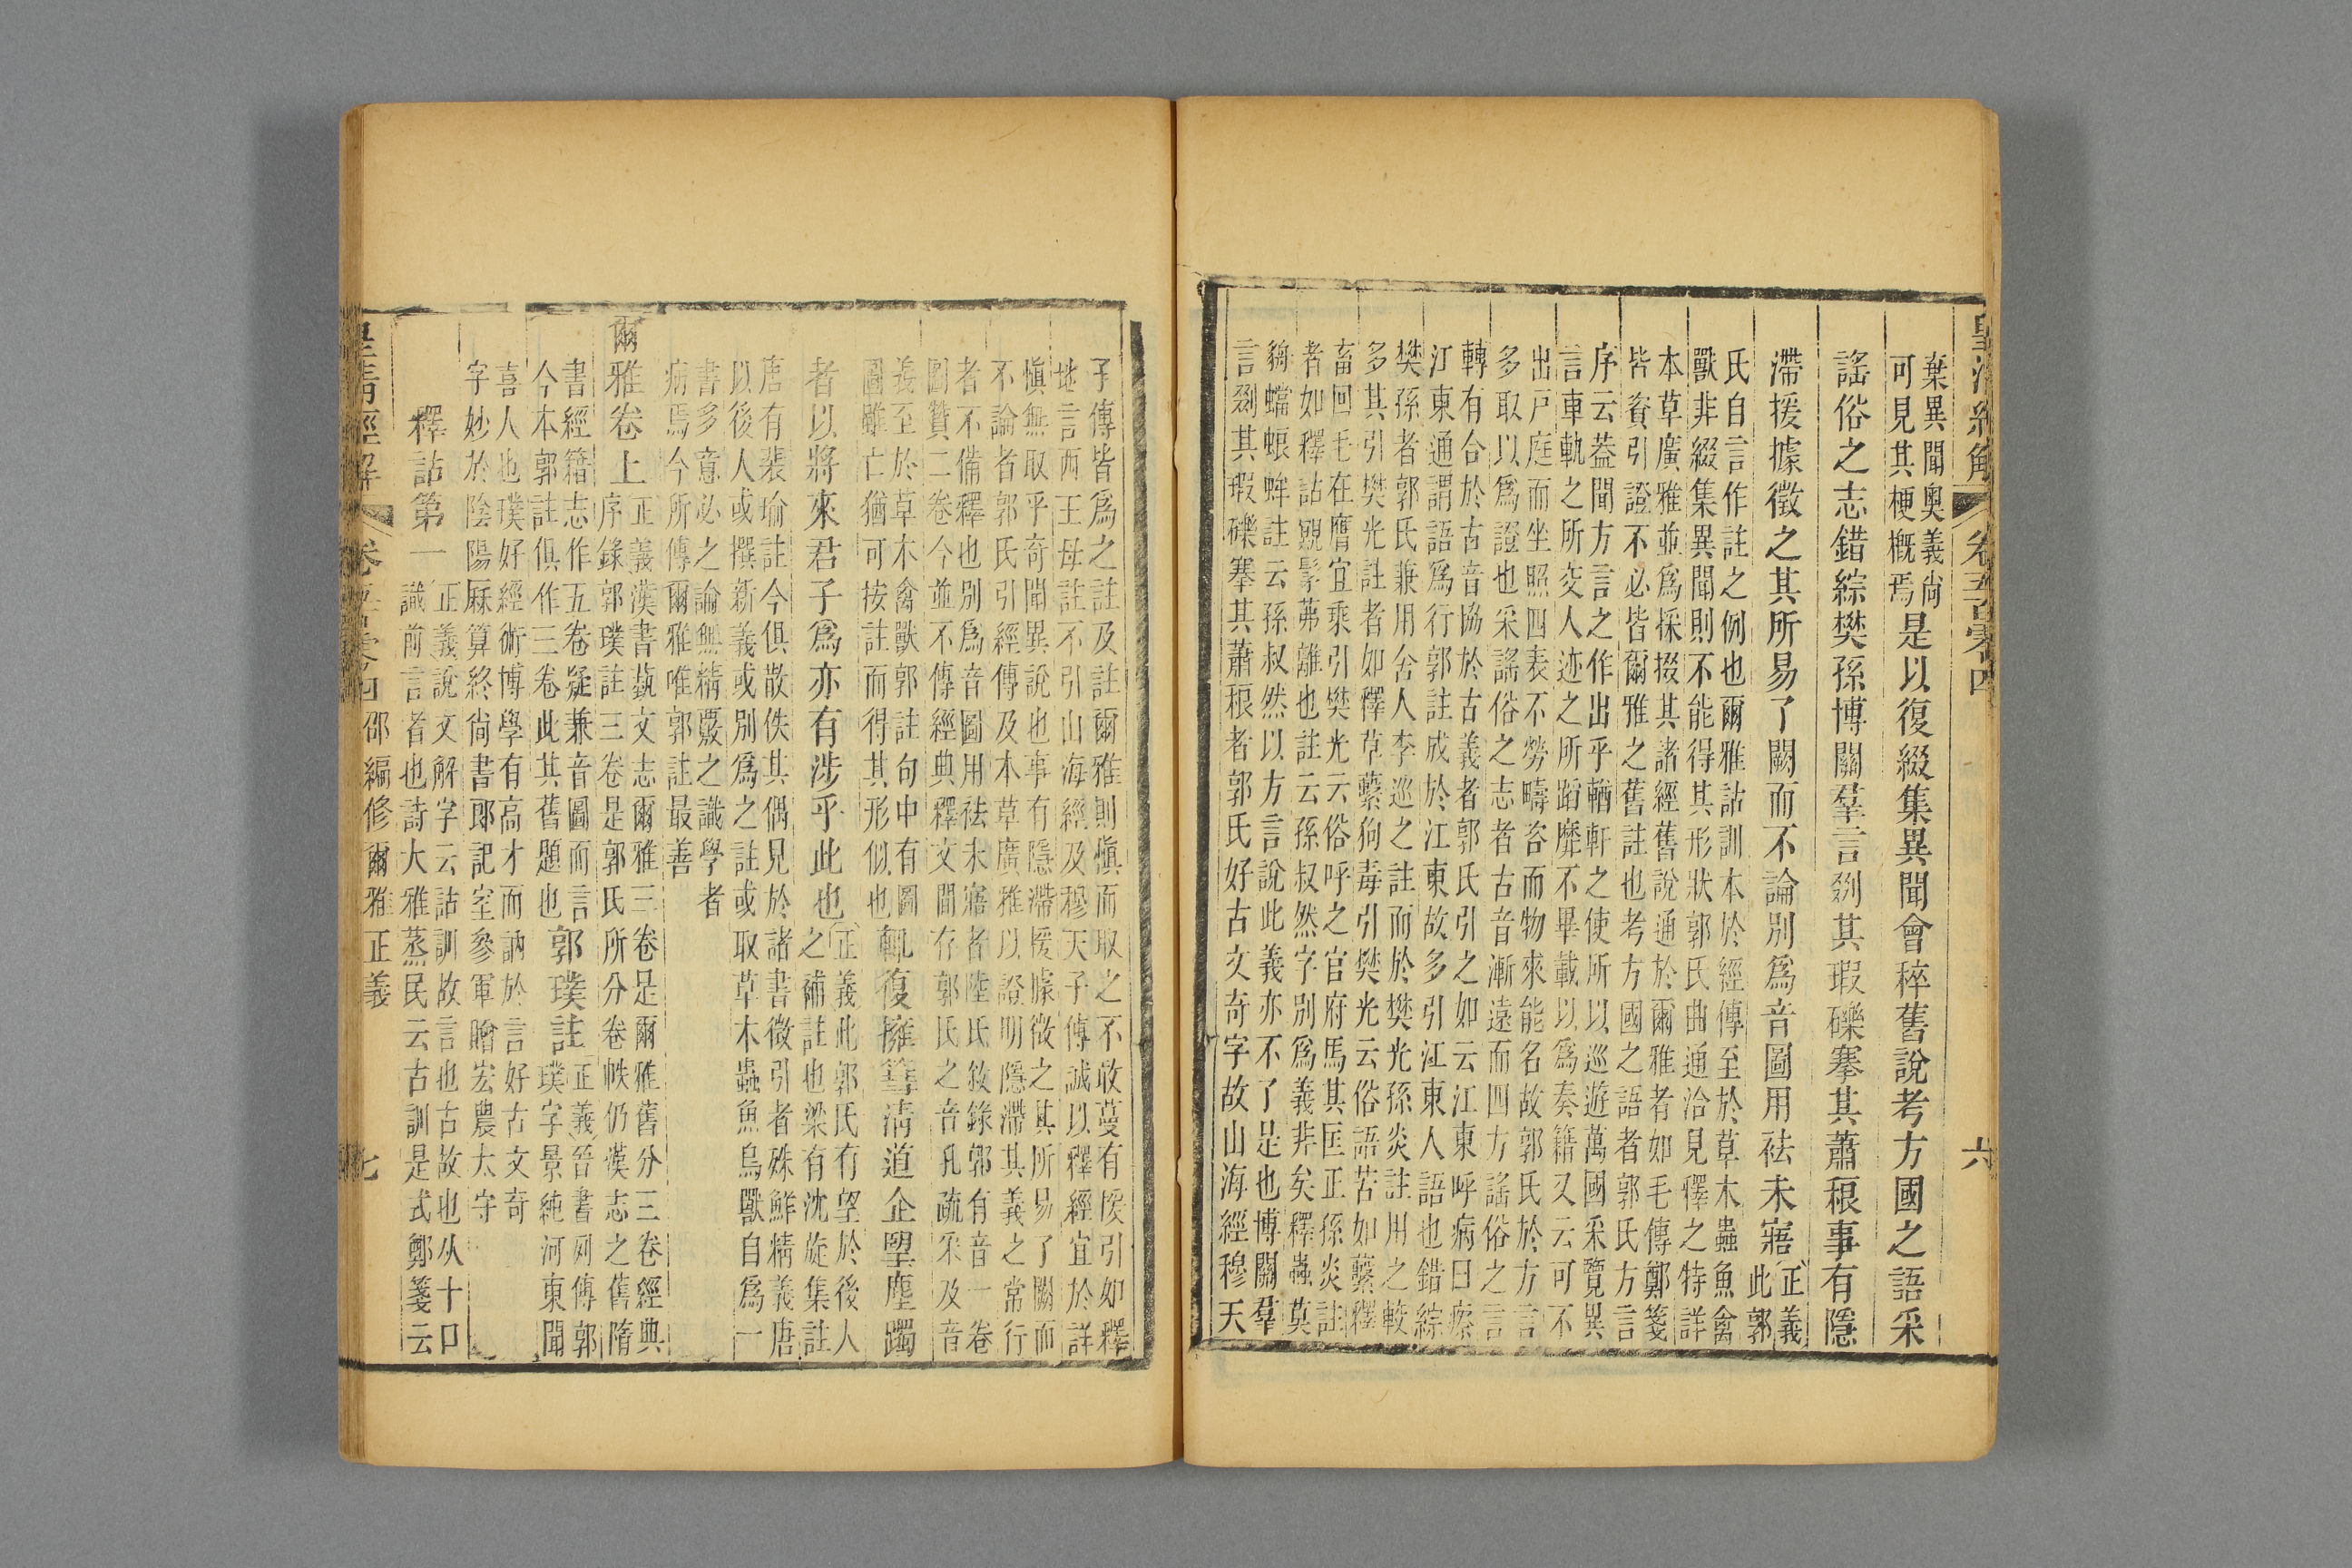 皇清經解 卷五百零四 六
棄異聞奧義尚
可見其梗槪焉
是以復綴集異聞會稡舊說考方國之語采
謠俗之志錯綜樊孫博關羣言剟其瑕礫搴其蕭稂事有隱
滯援據徵之其所易了闕而不論別爲音圖用袪未寤
正義
此郭
氏自言作註之例也爾雅詁訓本於經傳至於草木蟲魚禽
獸非綴集異聞則不能得其形狀郭氏曲通洽見釋之特詳
本草廣雅並爲採掇其諸經舊說通於爾雅者如毛傳鄭箋
皆資引證不必皆爾雅之舊註也考方國之語者郭氏方言
序云葢聞方言之作出乎輶軒之使所以巡遊萬國采覽異
言車軌之所交人迹之所蹈靡不畢載以爲奏籍又云可不
出戸庭而坐照四表不勞疇咨而物來能名故郭氏於方言
多取以爲證也采謠俗之志者古音漸遠而四方謠俗之言
轉有合於古音協於古義者郭氏引之如云江東呼病曰瘵
江東通謂語爲行郭註成於江東故多引江東人語也錯綜
樊孫者郭氏兼用舍人李巡之註而於樊光孫炎註用之較
多其引樊光註者如釋草蘩狗毒引樊光云俗語苦如蘩釋
畜回毛在膺宜乘引樊光云俗呼之官府馬其匡正孫炎註
者如釋詁覭髳茀離也註云孫叔然字別爲義非矣釋蟲莫
貈蟷蜋蛑註云孫叔然以方言說此義亦不了是也博關羣
言剟其瑕礫搴其蕭稂者郭氏好古文奇字故山海經穆天
子傳皆爲之註及註爾雅則愼而取之不敢蔓有援引如釋
地言西王母註不引山海經及穆天子傳誠以釋經宜於詳
愼無取乎奇聞異說也事有隱滯援據徵之其所易了闕而
不論者郭氏引經傳及本草廣雅以證明隱滯其義之常行
者不備釋也別爲音圖用袪未寤者陸氏敘錄郭有音一卷
圖贊二卷今並不傳經典釋文閒存郭氏之音孔疏釆及音
義至於草木禽獸郭註句中有圖
圖雖亡猶可按註而得其形似也
輒復擁篲淸道企望塵躅
者以將來君子爲亦有涉乎此也
正義此郭氏有望於後人
之補註也梁有沈旋集註
唐有裴瑜註今俱散佚其偶見於諸書徵引者殊鮮精義唐
以後人或撰新義或別爲之註或取草木蟲魚鳥獸自爲一
書多意必之論無精覈之識學者
病焉今所傳爾雅唯郭註最善
爾雅卷上
正義漢書蓺文志爾雅三卷是爾雅舊分三卷經典
序錄郭璞註三卷是郭氏所分卷帙仍漢志之舊隋
書經籍志作五卷疑兼音圖而言
今本郭註俱作三卷此其舊題也
郭璞註
正義晉書列傳郭
璞字景純河東聞
喜人也璞好經術博學有高才而訥於言好古文奇
字妙於陰陽厤算終尙書郎記室參軍贈宏農太守
釋詁第一
正義說文解字云詁訓故言也古故也从十口
識前言者也詩大雅蒸民云古訓是式鄭箋云
皇清經解 卷五百零四 邵編修爾雅正義 七